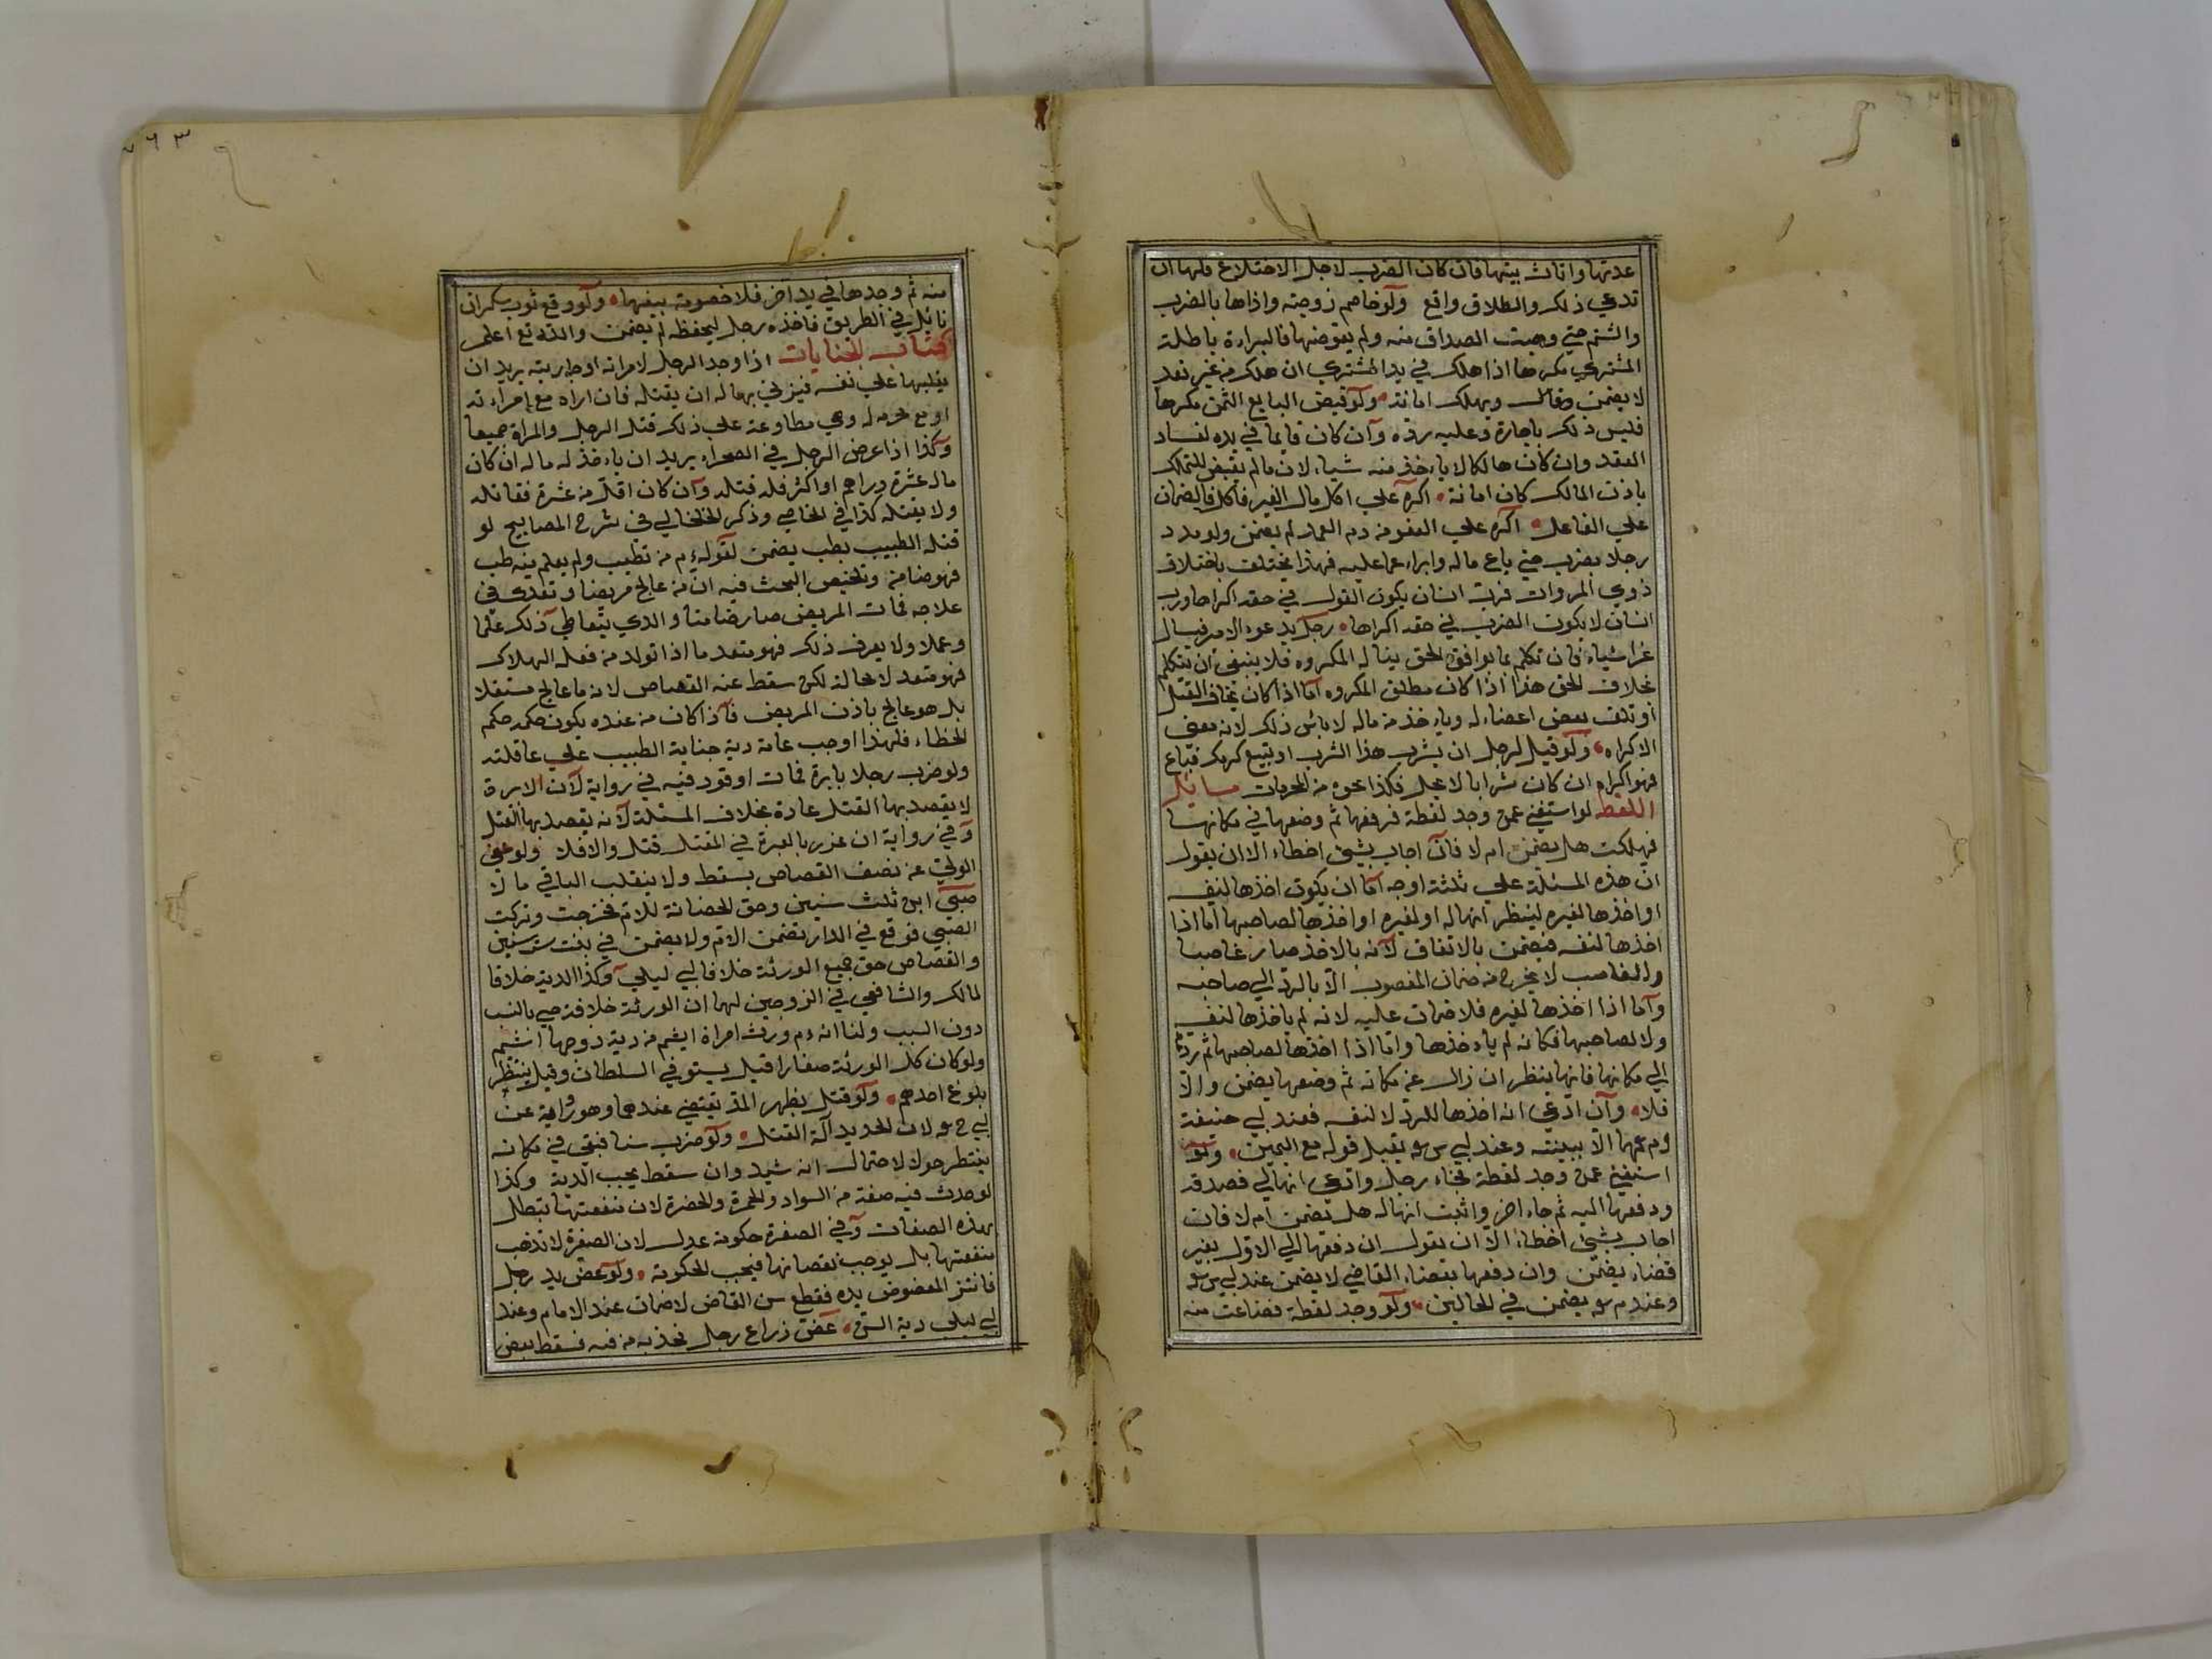 عدتها واثاث بيتها فان كان الضرب لاجل الاختلاع فلها ان
تدعي ذلك والطلاق واقع ولو خاصم زوجته واذاها بالضرب
والشتم حتي وهبت الصداق منه ولم يعوضها فالبراءة باطلة
المشتري مكرها اذا هلك في يد المشتري ان هلك من غير تعد
لا يضمن ويهلك امانة ولو قبض البايع الثمن مكرها
فليس ذلك باجازة وعليه رده وان كان قايما في يده لفساد
العقد وان كان هالكا لا ياءخذ منه شياء لان ما لم يقبض للتملك
باذن المالك كان امانة اكره علي اكل مال الغير فاكل فالضمان
علي الفاعل اكره علي العفو من دم العمد لم يضمن ولو هدد
رجلا بضرب حتي باع ماله وابراء عما عليه فهذا يختلف باختلاف
ذوي المروات فرب انسان يكون القول في حقه اكراها ورب
انسان لا يكون الضرب في حقه اكراها رجل يدعوه الامير فيسال
عن اشياء فان تكلم بما يوافق الحق يناله المكروه فلا ينبغي ان يتكلم
بخلاف الحق هذا اذا كان مطلق المكروه اما اذا كان يخاف القتل
او تلف بعض اعضاءه وياءخذ من ماله لا باس ذلك لانه معني
الاكراه ولو قيل لرجل ان يشرب هذا الشرب او تبيع كرمك فباع
فهو اكراه ان كان شرابا لا يحل فكذا نحوه من المحرمات مسايل
اللقطة لو استفتي عمن وجد لقطة فرفعها ثم وضعها في مكانها
فهلكت هل يضمن ام لا فان اجاب بشيئ اخطاء الا ان يقول
ان هذه المسئلة علي ثلثة اوجه اما ان يكون اخذها لنفسه
او اخذها لغيره لينظر انها له او لغيره او اخذها لصاحبها اما اذا
اخذها لنفسه فيضمن بالاتفاق لانه بالاخذ صار غاصبا
والغاصب لا يخرج من ضمان المغصوب الا بالرد الي صاحبه
واما اذا اخذها لغيره فلا ضمان عليه لانه لم ياخذها لنفسه
ولا لصاحبها فكانه لم ياءخذها واما اذا اخذها لصاحبها ثم ردها
الي مكانها فانها ينظر ان زال عن مكانه ثم وضعها يضمن والا
فلا وان ادعي انه اخذها للرد لا لنفسه فعند ابي حنيفة
وم عهما الا ببينة وعند ابي س سو يقبل قوله مع اليمين ولو
استفتي عمن وجد لقطة فجاء رجل وادعي انها لي فصدقه
ودفعها اليه ثم جاء اخر واثبت انها له هل يضمن ام لا فان
اجاب بشيئ اخطاء الا ان يقول ان دفعها الي الاول بغير
قضاء يضمن وان دفعها بقضاء القاضي لا يضمن عند ابي س سو
وعند م سو يضمن في الحالين ولو وجد لقطة فضاعت منه
٢٦٣
منه ثم وجدها في يد آخر فلا خصومة بينهما ولو وقع ثوب سكران
نائل في الطريق فاخذه رجل ليحفظه لم يضمن والله تع اعلم
كتاب الجنايات اذا وجد الرجل لامرانه او جاريته يريد ان
يغلبها علي نفسه فيزني بها له ان يقتله فان اراه مع امراءته
او مع محرم له وهي مطاوعة علي ذلك قتل الرجل والمراة جميعا
وكذا اذا عرض الرجل في الصحراء يريد ان ياءخذ له ماله ان كان
ماله عشرة دراهم او اكثر فله قتله وان كان اقل من عشرة فقاتله
ولا يقتله كذا في الخاصي وذكر الخلخالي في شرح المصابيح لو
قتله الطبيب بطب يضمن لقوله م من تطبب ولم يعلم منه طب
فهو ضامن وتلخيص البحث فيه ان من عالج مريضا وتعدي في
علاجه فمات المريض صار ضامنا والذي يتعاطي ذلك علما
وعملا ولا يعرف ذلك فهو متعد ما اذا تولد من فعله الهلاك
فهو متعد لا محالة لكن سقط عنه القصاص لانه ما عالج مستقلا
بل هو عالج باذن المريض فاذا كان من عنده يكون حكمه حكم
الخطاء فلهذا اوجب عامة دية جناية الطبيب علي عاقلته
ولو ضرب رجلا بابرة فمات او قود فيه في رواية لان الابرة
لا يقصد بها القتل عادة بخلاف المسئلة لانه يقصد بها القتل
وفي رواية ان غزر بالابرة في المقتل قتل والا فلا ولو عفي
الولي عن نصف القصاص يسقط ولا ينقلب الباقي مالا
صبي ابن ثلث سنين وحق الحضانة للام فخرجت وتركت
الصبي فوقع في الدار تضمن الام ولا يضمن في بنت ست سنين
والقصاص حق جميع الورثة خلافا لابي ليلي وكذا الدية خلافا
لمالك والشافعي في الزوجين لهما ان الورثة خلافة هي بالنسب
دون السبب ولنا انه م ورث امراة اشيم من دية زوجها اشيم
ولو كان كل الورثة صغارا قيل يستوفي السلطان وقيل ينتظر
بلوغ احدهم ولو قتل بظهر المد يقتضي عندهما وهو رواية عن
ابي ح سو لان الحديد آلة القتل ولو ضرب سنا فبقي في مكانه
ينتظر حولا لاحتمال انه شيد وان سقط يجب الدية وكذا
لو حدث فيه صفة من السواد والحمرة والخضرة لان منفعتها تبطل
بهذه الصفات وفي الصفرة حكومة عدل لان الصفرة لا تذهب
منفعتها بل يوجب نقصانها فيجب الحكومة ولو عض يد رجل
فانتز المعضوض يده فقطع سن القاض لا ضمان عند الامام وعند
ابي ليلي دية السن عض ذراع رجل فجذبه من فمه فسقط بعض